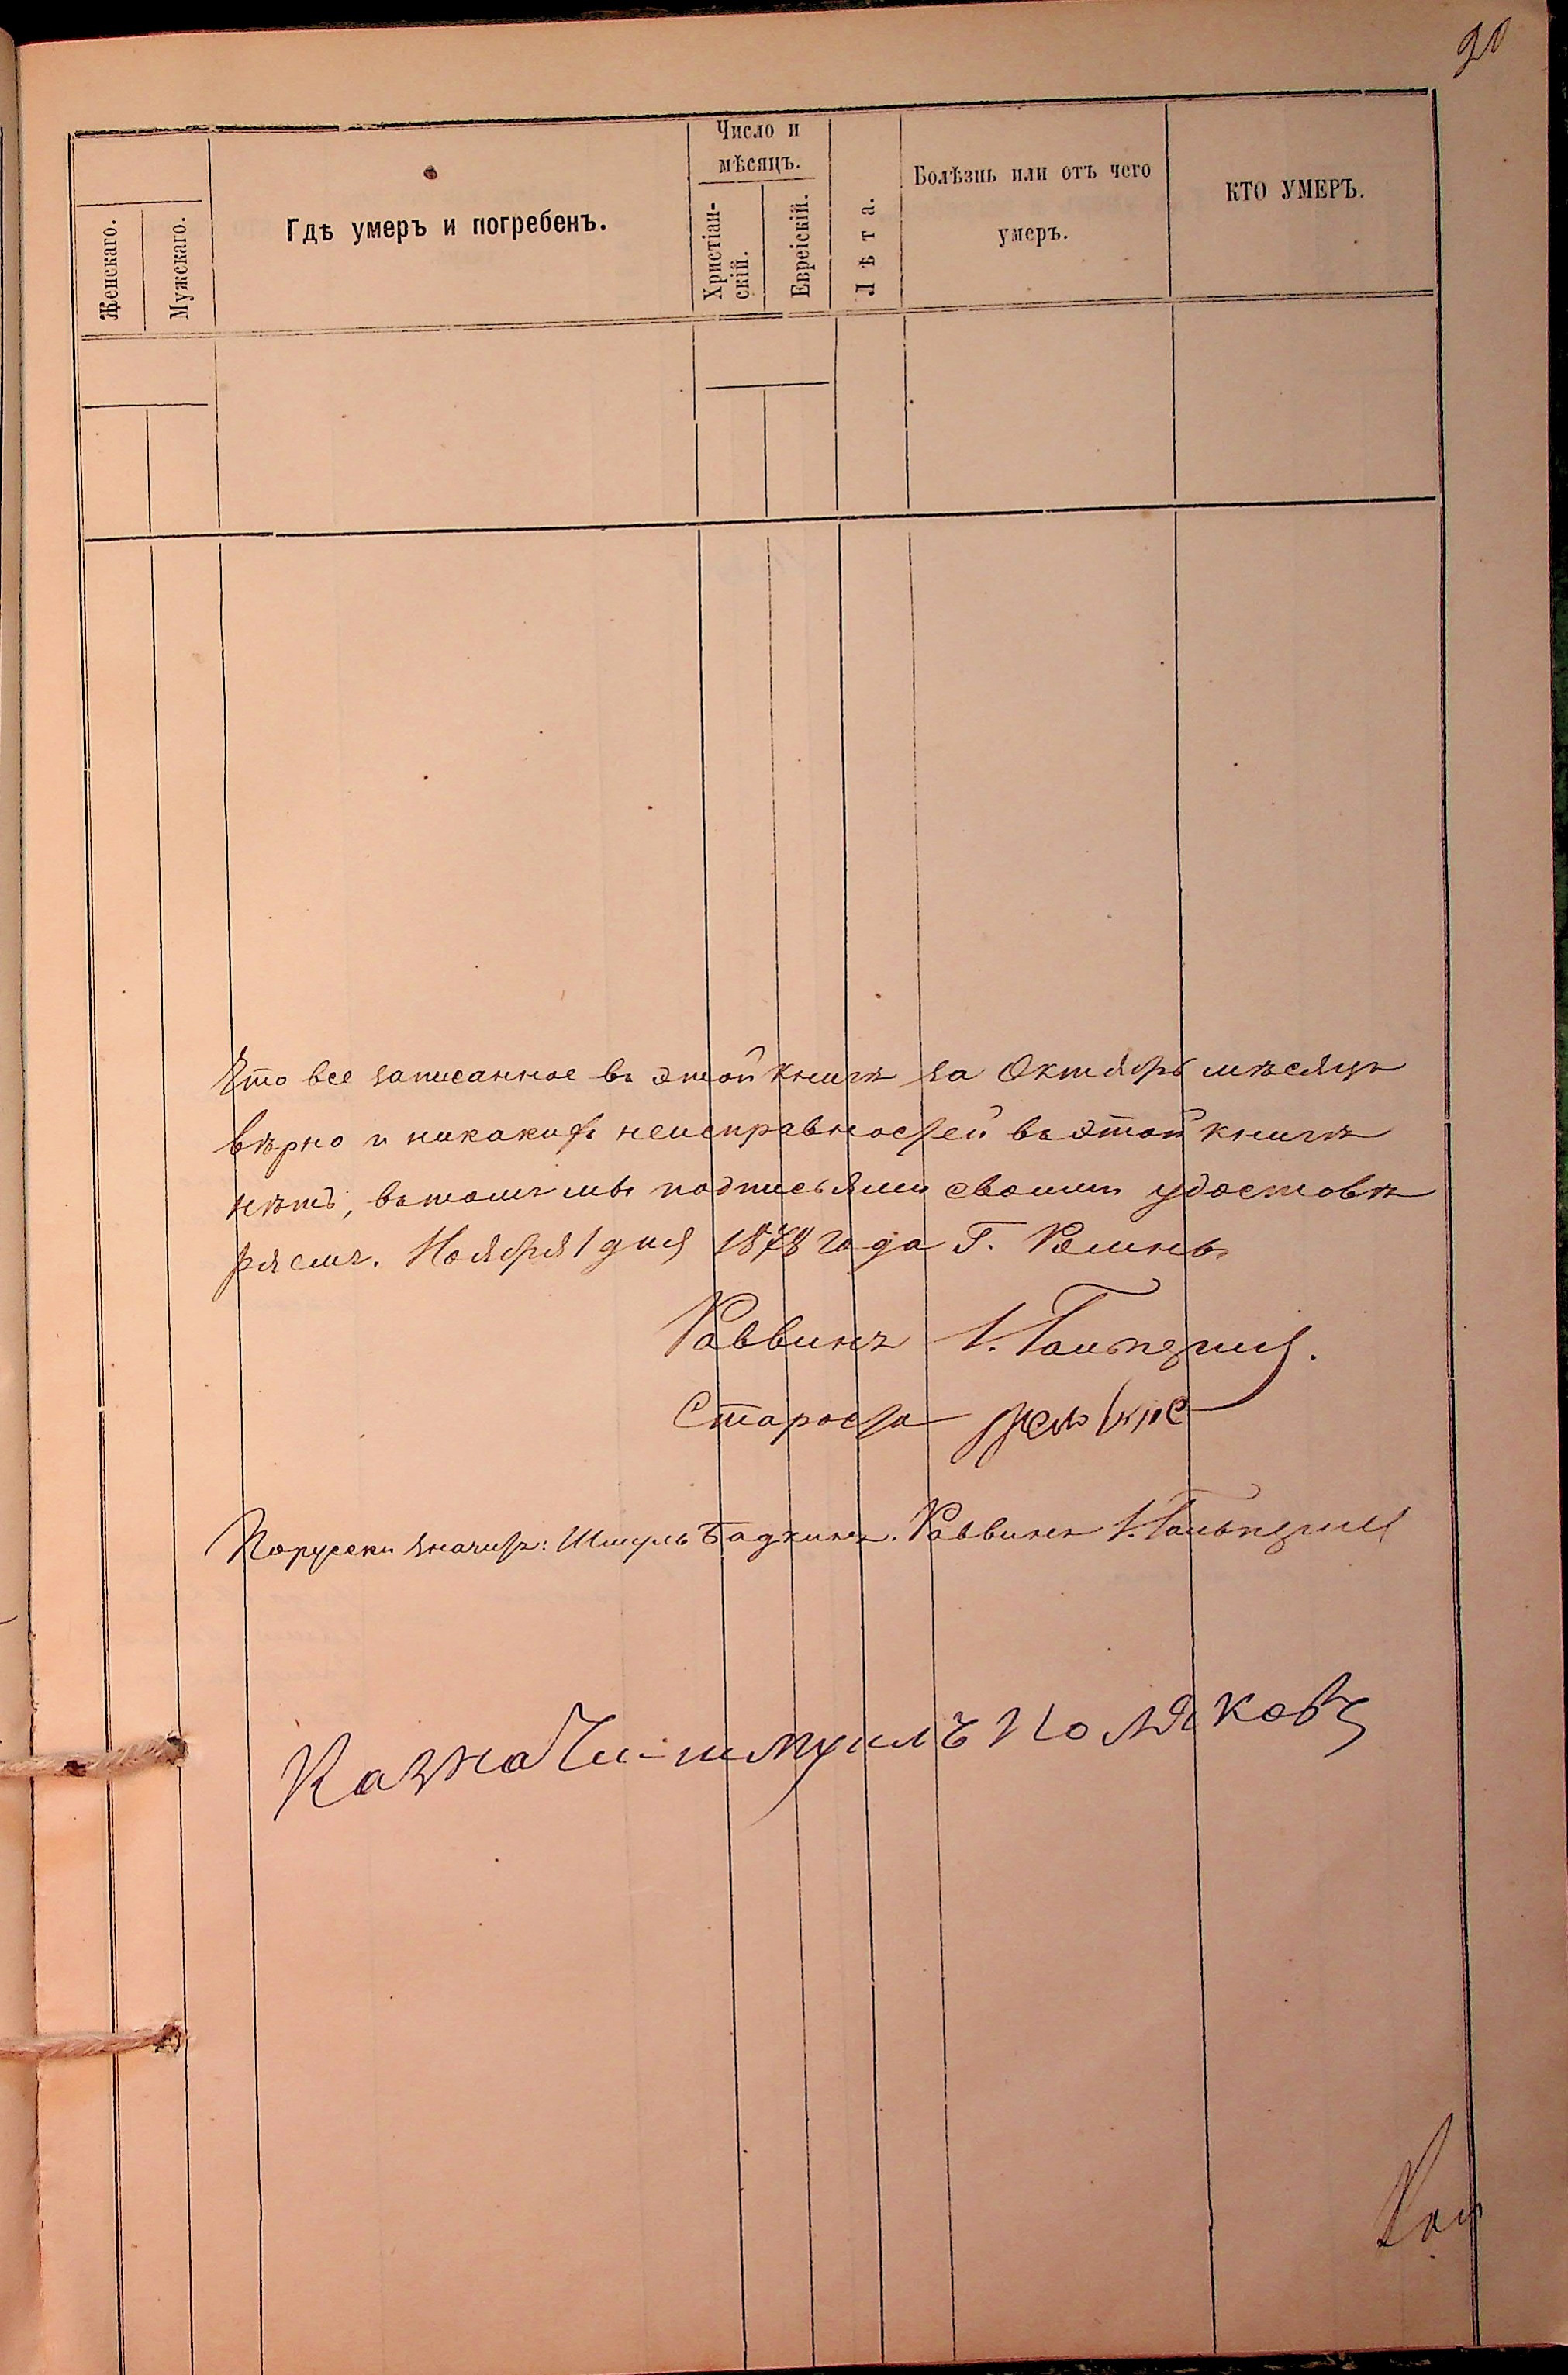 90
Женскаго.
Мужскаго.
Гдѣ умеръ и погребенъ.
Число и
мѣсяцъ.
Христіан-
скій.
Евреіскій.
Лѣта.
Болѣзнь или отъ чего
умеръ.
КТО УМЕРЪ.
Что все записанное въ этой книгѣ за Октябрь мѣсяцъ
вѣрно и никакихъ неисправностей въ этой книгѣ
нѣтъ, въ томъ мы подписями своими удостовѣ
ряемъ. Ноября 1 дня 1878 года Г. Ромны
Раввинъ І. Гальперинъ.
Староста
Порусски значитъ: Шмуль Бадкинъ. Раввинъ І. Гальперинъ
Казначи шмуилъ Поляковъ